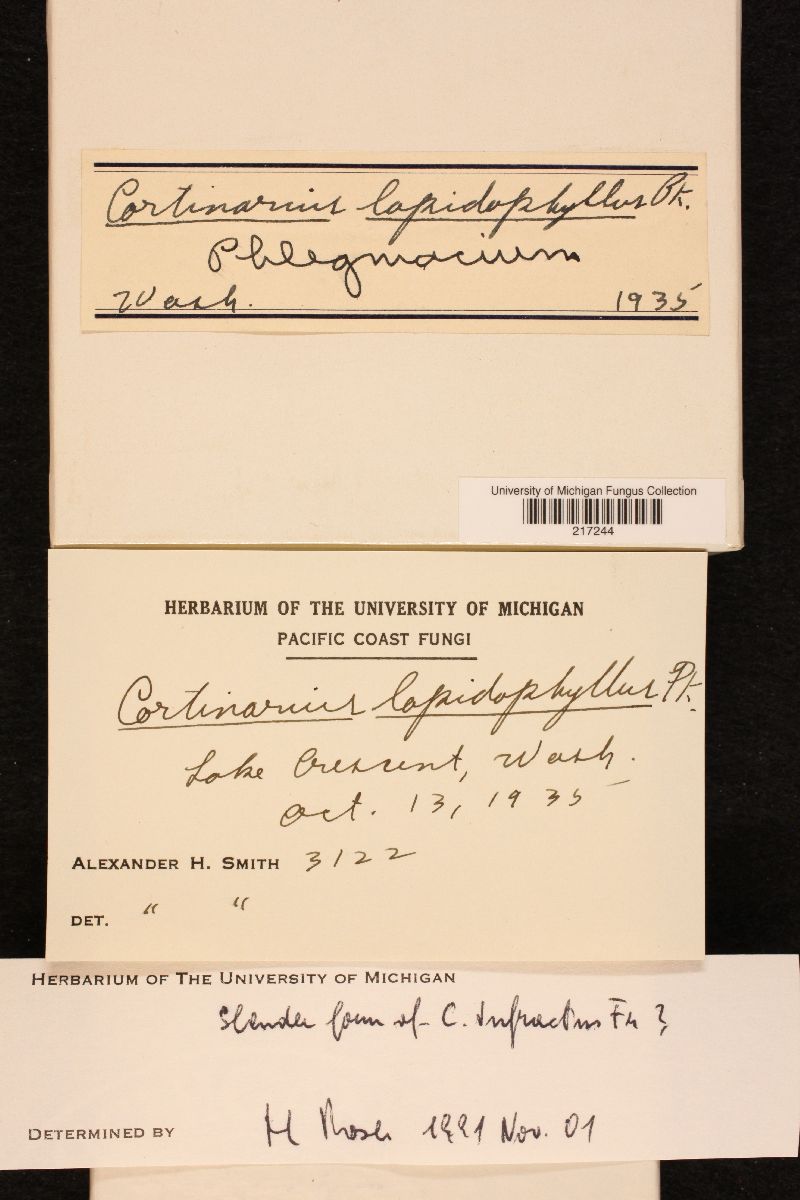 Cortinarius lapidophyllus Pk.
Phlegmacium
Wash. 1935
University of Michigan Fungus Collection
217244
HERBARIUM OF THE UNIVERSITY OF MICHIGAN
PACIFIC COAST FUNGI
Cortinarius lapidophyllus Pk.
Lake Crescent, Wash.
Oct. 13, 1935
ALEXANDER H. SMITH 3122
DET. " "
HERBARIUM OF THE UNIVERSITY OF MICHIGAN
Slender form of C. infractus Fr ?
DETERMINED BY M Moser 1991 Nov. 01